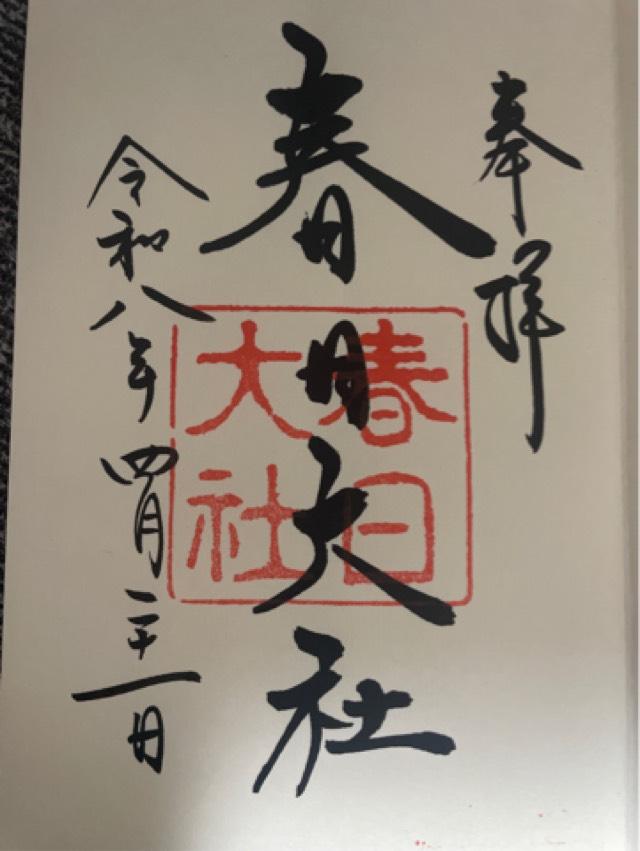 奉拝
春日大社
春日
大社
令和八年四月二十一日